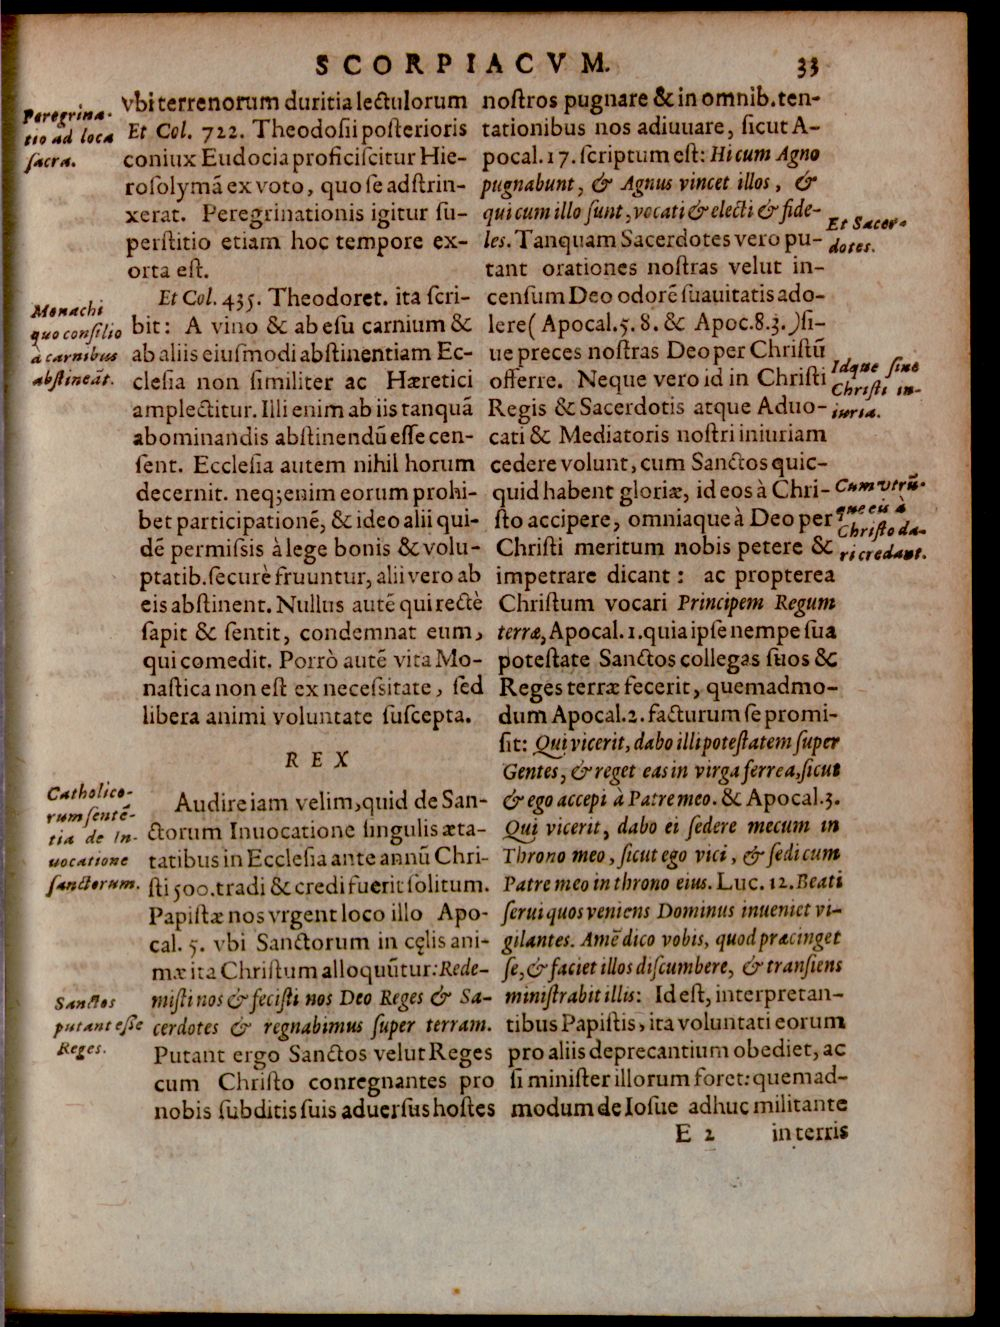 SCORPIACVM. 33
Peregrina-
tio ad loca
sacra.
vbi terrenorum duritia lectulorum
Et Col. 722. Theodosii posterioris
coniux Eudocia proficiscitur Hie-
rosolymā ex voto, quo se adstrin-
xerat. Peregrinationis igitur su-
perstitio etiam hoc tempore ex-
orta est.
Monachi
quo consilio
à carnibus
abstineāt.
Et Col. 435. Theodoret. ita scri-
bit: A vino & ab esu carnium &
ab aliis eiusmodi abstinentiam Ec-
clesia non similiter ac Hæretici
amplectitur. Illi enim ab iis tanquā
abominandis abstinendū esse cen-
sent. Ecclesia autem nihil horum
decernit. neq; enim eorum prohi-
bet participationē, & ideo alii qui-
dē permissis à lege bonis & volu-
ptatib. securè fruuntur, alii vero ab
eis abstinent. Nullus autē qui rectè
sapit & sentit, condemnat eum,
qui comedit. Porrò autē vita Mo-
nastica non est ex necessitate, sed
libera animi voluntate suscepta.
REX
Catholico-
rum sentē-
tia de In-
uocatione
sanctorum.
Audire iam velim, quid de San-
ctorum Inuocatione singulis æta-
tatibus in Ecclesia ante annū Chri-
sti 500. tradi & credi fuerit solitum.
Papistæ nos vrgent loco illo Apo-
cal. 5. vbi Sanctorum in cęlis ani-
mæ ita Christum alloquūtur: Rede-
Sanctos
putant esse
Reges.
misti nos & fecisti nos Deo Reges & Sa-
cerdotes & regnabimus super terram.
Putant ergo Sanctos velut Reges
cum Christo conregnantes pro
nobis subditis suis aduersus hostes
nostros pugnare & in omnib. ten-
tationibus nos adiuuare, sicut A-
pocal. 17. scriptum est: Hi cum Agno
pugnabunt, & Agnus vincet illos, &
qui cum illo sunt, vocati & electi & fide-
les. Tanquam Sacerdotes vero pu-
Et Sacer-
dotes.
tant orationes nostras velut in-
censum Deo odorē suauitatis ado-
lere (Apocal. 5. 8. & Apoc. 8. 3.) si-
ue preces nostras Deo per Christū
offerre. Neque vero id in Christi
Idque sine
Christi in-
iuria.
Regis & Sacerdotis atque Aduo-
cati & Mediatoris nostri iniuriam
cedere volunt, cum Sanctos quic-
quid habent gloriæ, id eos à Chri-
Cum vtrū-
que eis à
Christo da-
ri credant.
sto accipere, omniaque à Deo per
Christi meritum nobis petere &
impetrare dicant: ac propterea
Christum vocari Principem Regum
terræ, Apocal. 1. quia ipse nempe sua
potestate Sanctos collegas suos &
Reges terræ fecerit, quemadmo-
dum Apocal. 2. facturum se promi-
sit: Qui vicerit, dabo illi potestatem super
Gentes, & reget eas in virga ferrea, sicut
& ego accepi à Patre meo. & Apocal. 3.
Qui vicerit, dabo ei sedere mecum in
Throno meo, sicut ego vici, & sedi cum
Patre meo in throno eius. Luc. 12. Beati
serui quos veniens Dominus inueniet vi-
gilantes. Amē dico vobis, quod præcinget
se, & faciet illos discumbere, & transiens
ministrabit illis: Id est, interpretan-
tibus Papistis, ita voluntati eorum
pro aliis deprecantium obediet, ac
si minister illorum foret: quemad-
modum de Iosue adhuc militante
E 2 in terris